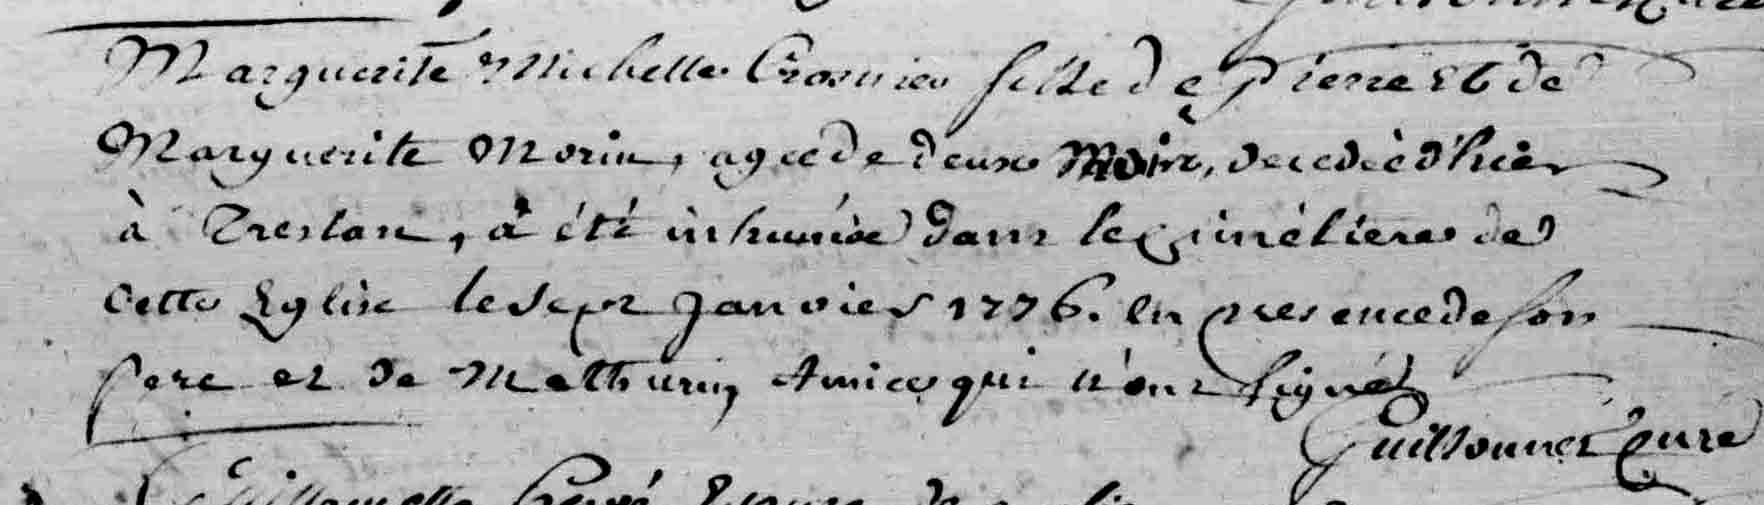 Marguerite Michelle Crosnier fille de Pierre Et de
Marguerite Morin, agée de deux Mois, decedèe d'hier
à Treslan, à été inhumée dans le cimétiere de
Cette Eglise le sept Janvier 1776. en presence de son
pere et de Mathurin Amice qui n'ont signé
Guillonnet Curé